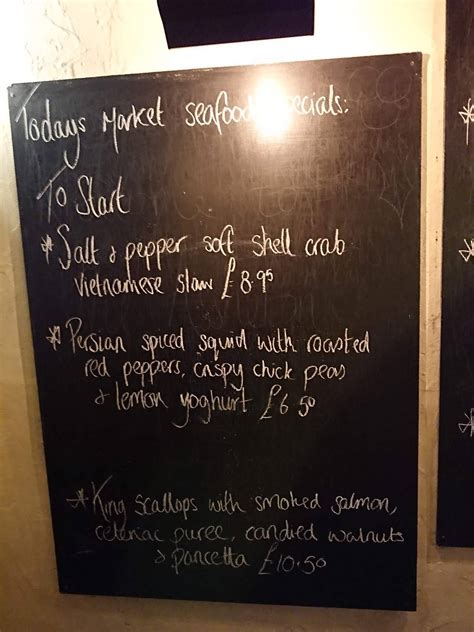 Todays Market seafood specials:
To Start
* Salt & pepper soft shell crab
Vietnamese slaw £8.95
* Persian spiced squid with roasted
red peppers, crispy chick peas
& lemon yoghurt £6.50
* King Scallops with smoked salmon,
celeriac puree, candied walnuts
& pancetta £10.50